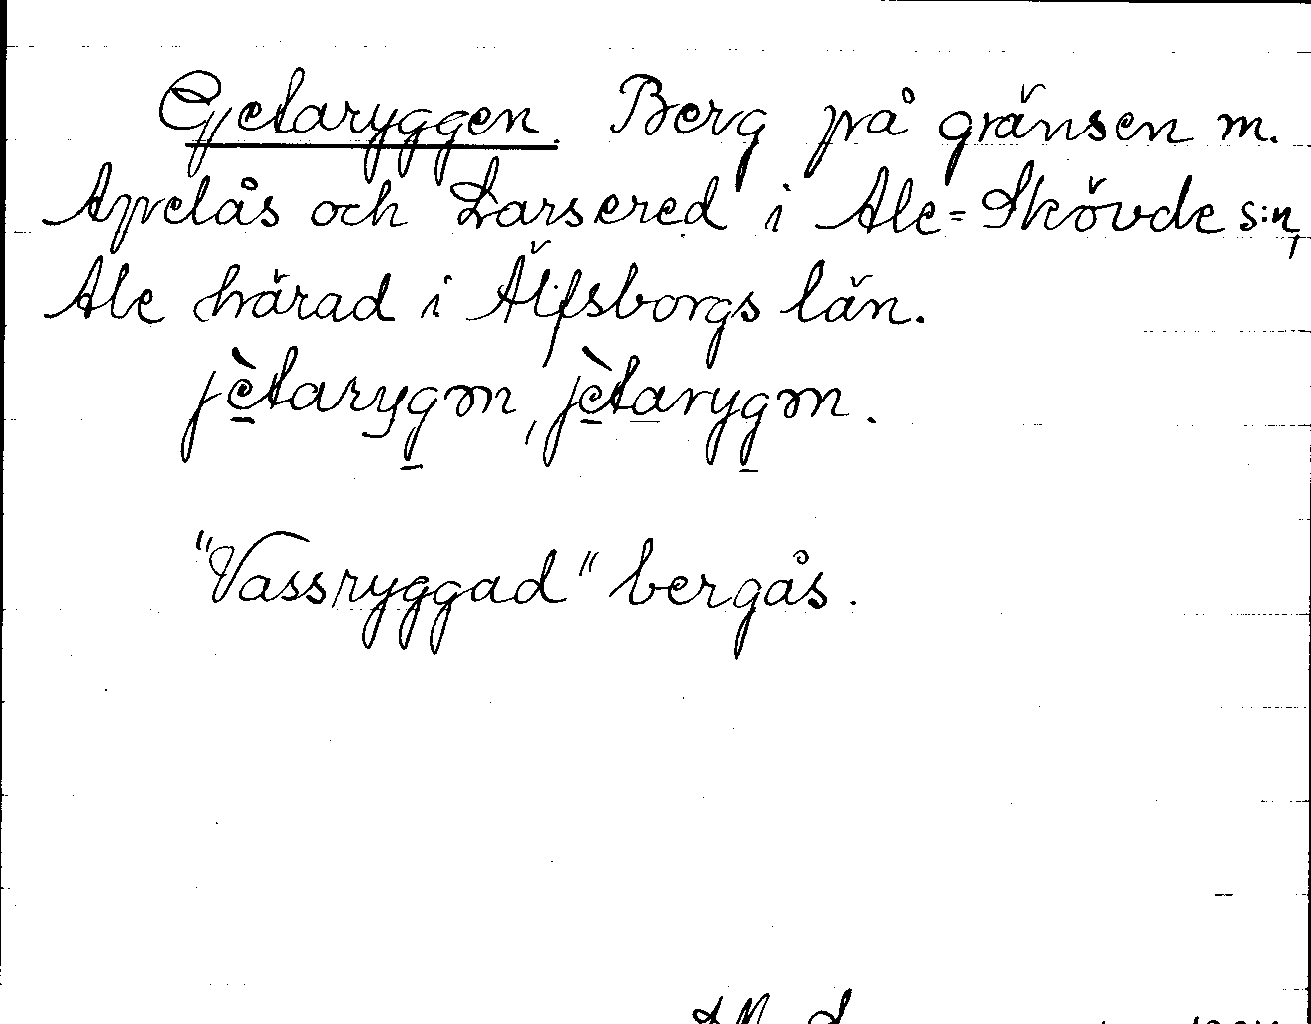 Gjetaryggen. Berg på gränsen m.
Apelås och Larsered i Ale-Skövde s:n,
Ale härad i Älfsborgs län.
jètarygən, jètarygən.
"Vassryggad" bergås.